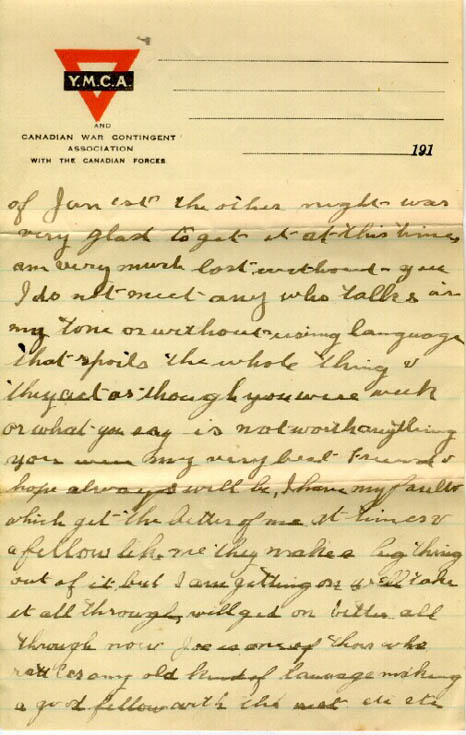 Y.M.C.A.
AND
CANADIAN WAR CONTINGENT
ASSOCIATION
WITH THE CANADIAN FORCES
191
of Jan 1st the other night was
very glad to get it at this time,
am very much lost without you
I do not meet any who talks in
my tone or without using language
that spoils the whole thing &
they act as though you were weak
or what you say is not worth anything
you were my very best friend &
hope always will be, I have my faults
which get the better of me at times &
a fellow like me they make a big thing
out of it, but I am getting on well take
it all through, will get on better all
through now Joe is one of those who
rattles any old kind of lauvage making
a good fellow with the rest etc etc